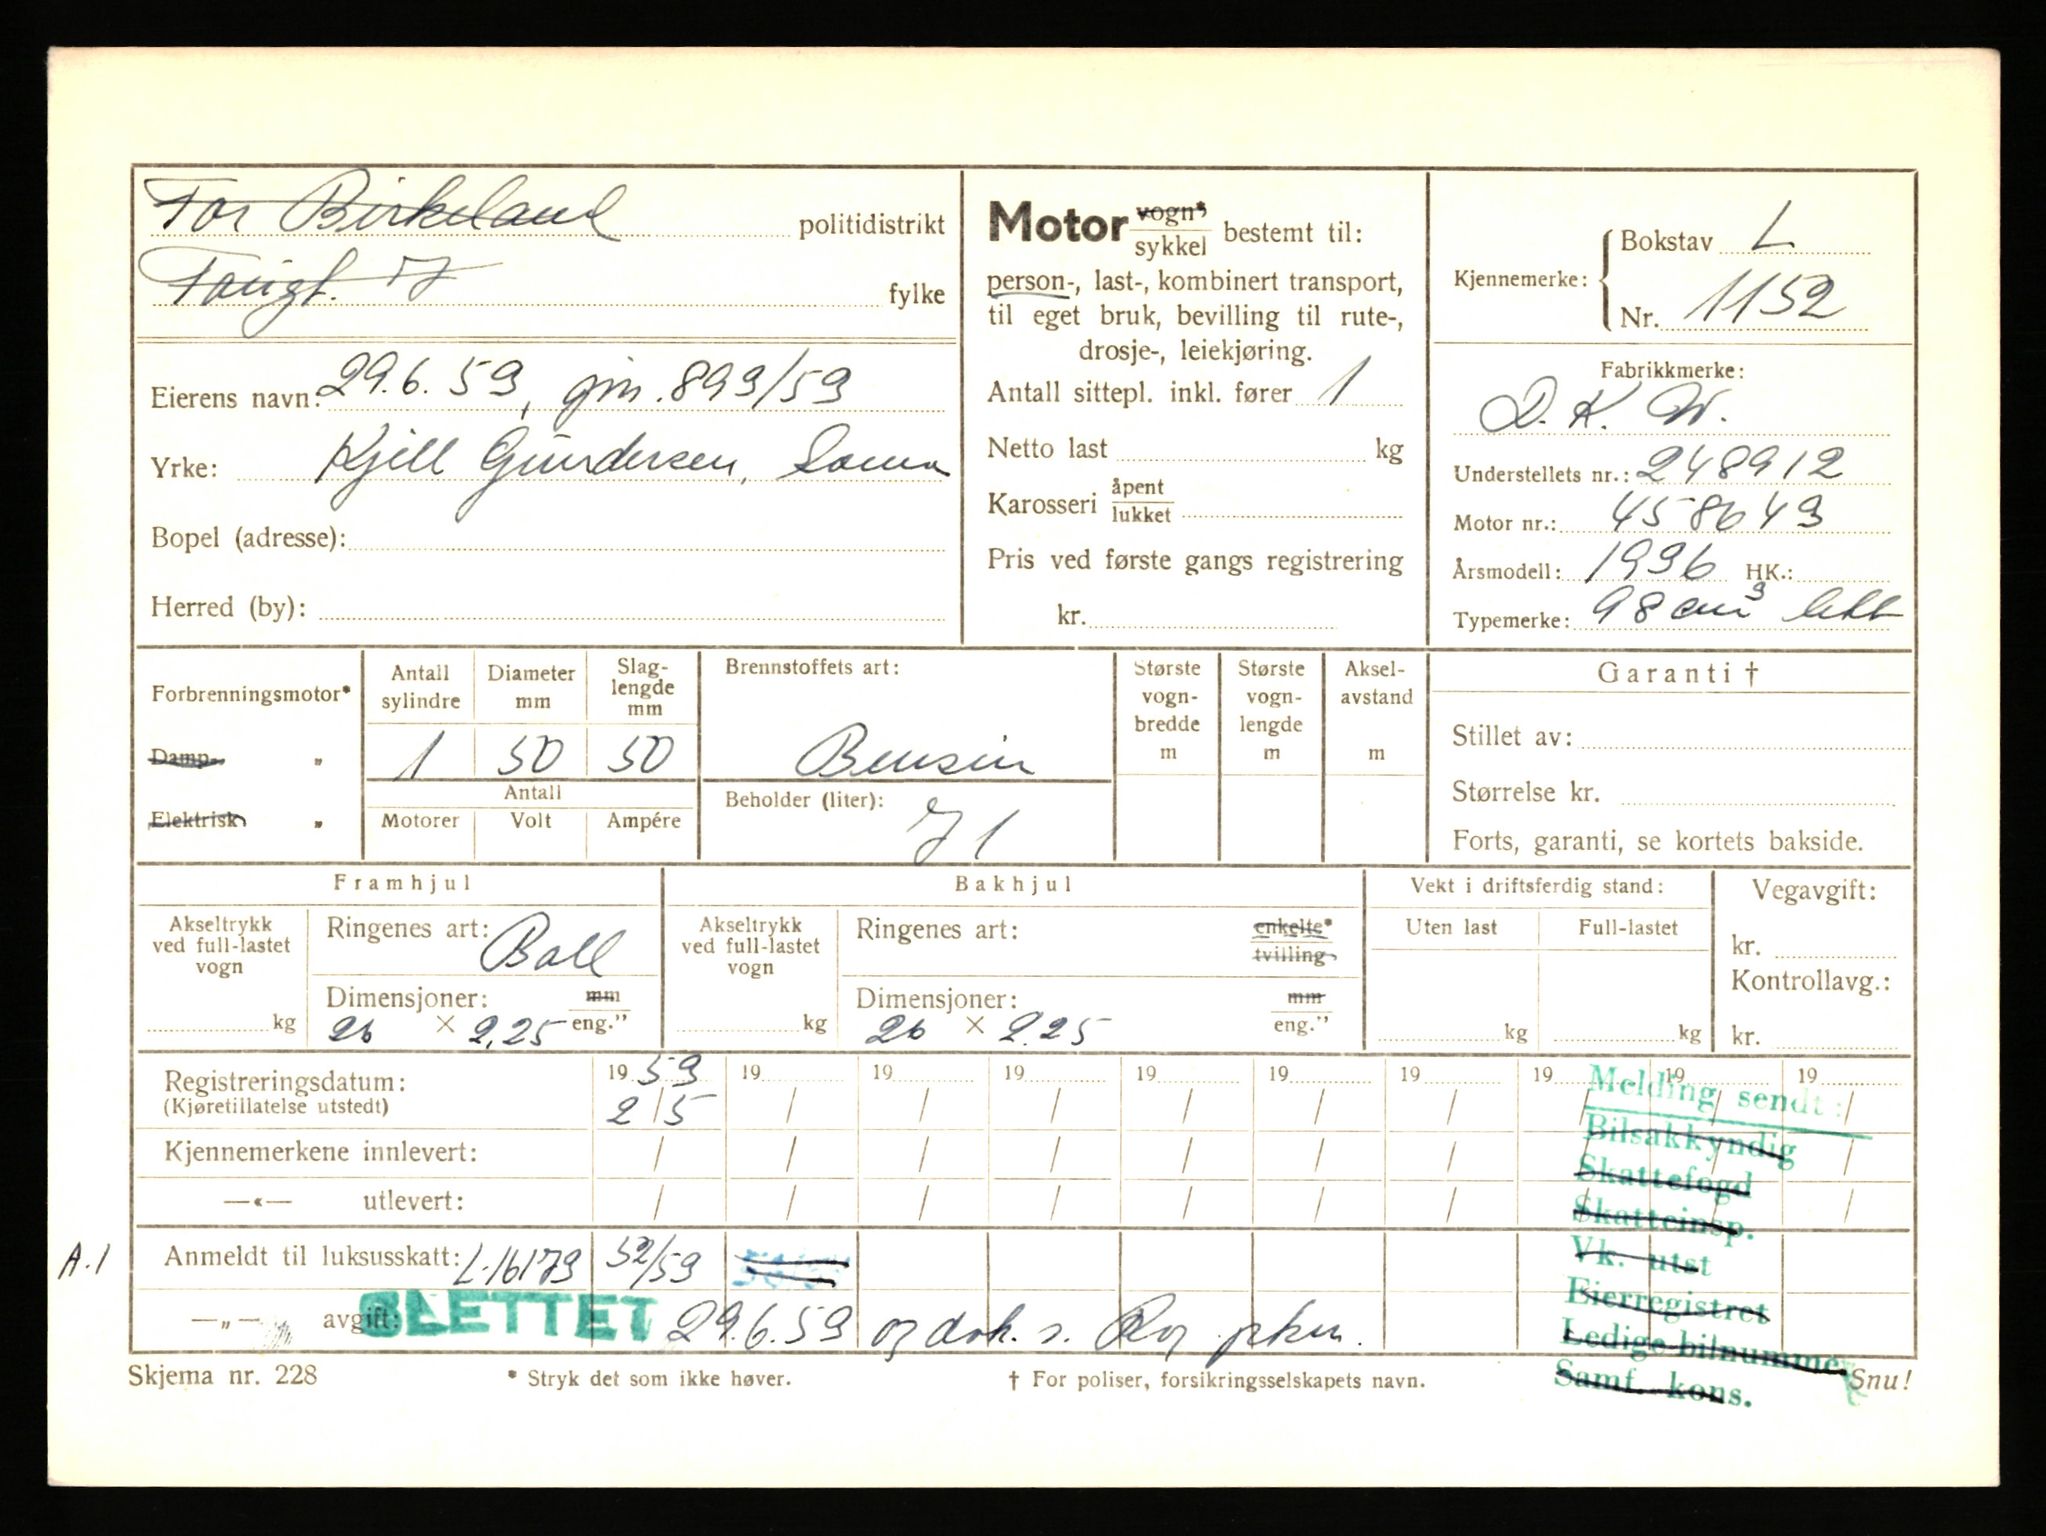 Tor Birkeland politidistrikt
Tougt. 7 fylke
Eierens navn: 29.6.59, gjn. 893/59
Yrke: Kjell Gundersen, Soma
Bopel (adresse):
Herred (by):
Motor vogn*
sykkel bestemt til:
person-, last-, kombinert transport,
til eget bruk, bevilling til rute-,
drosje-, leiekjøring.
Antall sittepl. inkl. fører 1
Netto last kg
Karosseri åpent
lukket
Pris ved første gangs registrering
kr.
Kjennemerke: Bokstav L
Nr. 1152
Fabrikkmerke:
D. K. W.
Understellets nr.: 248912
Motor nr.: 458643
Årsmodell: 1936 HK.:
Typemerke: 98 cm³ lett
Forbrenningsmotor*
Damp- „
Elektrisk „
Antall
sylindre
1
Diameter
mm
50
Slag-
lengde
mm
50
Antall
Motorer Volt Ampére
Brennstoffets art:
Bensin
Beholder (liter):
7 l
Største
vogn-
bredde
m
Største
vogn-
lengde
m
Aksel-
avstand
m
Garanti †
Stillet av:
Størrelse kr.
Forts, garanti, se kortets bakside.
Framhjul
Akseltrykk
ved full-lastet
vogn
kg
Ringenes art: Ball
Dimensjoner: mm
26 × 2,25 eng."
Bakhjul
Akseltrykk
ved full-lastet
vogn
kg
Ringenes art: enkelte*
tvilling
Dimensjoner: mm
26 × 2.25 eng."
Vekt i driftsferdig stand:
Uten last Full-lastet
kg kg
Vegavgift:
kr.
Kontrollavg.:
kr.
Registreringsdatum: 19 59 19 19 19 19 19 19 19 19 19
(Kjøretillatelse utstedt) 2/5 / / / / / / / / /
Kjennemerkene innlevert: / / / / / / / / / /
—«— utlevert: / / / / / / / / / /
A.1 Anmeldt til luksusskatt: L-16179 52/59
—„— avgift: SLETTET 29.6.59 og dok. s. Rog. pkm.
Melding sendt:
Bilsakkyndig
Skattefogd
Skatteinsp.
Vk. utst
Eierregistret
Ledige bilnumme
Samf. kons.
Skjema nr. 228 * Stryk det som ikke høver. † For poliser, forsikringsselskapets navn. Snu!